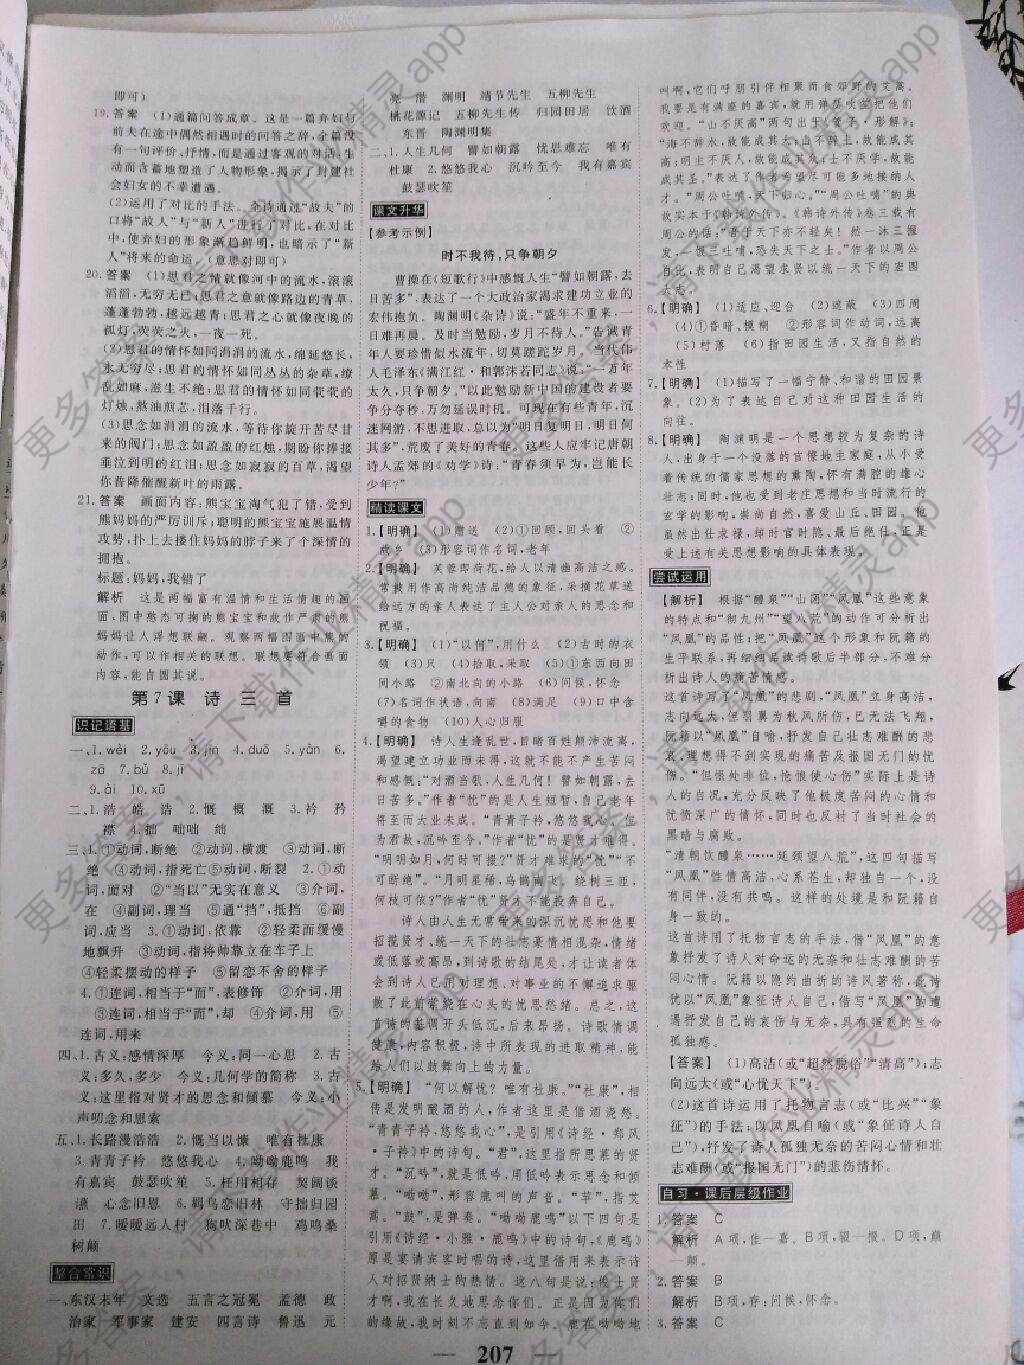 即可)
19.答案 (1)通篇问答成章。这是一篇弃妇与
前夫在途中偶然相遇时的问答之辞,全篇没
有一句评价、抒情,而是通过客观的对话,生
动而含蓄地塑造了人物形象,揭示了封建社
会妇女的不幸遭遇。
(2)运用了对比的手法。全诗通过“故夫”的
口将“故人”与“新人”进行了对比,在对比
中,使弃妇的形象渐趋鲜明,也暗示了“新
人”将来的命运。(意思对即可)
20.答案 (1)思君之情就像河中的流水,滚滚
滔滔,无穷无已;思君之意就像路边的青草,
蓬蓬勃勃,越远越青;思君之心就像夜晚的
孤灯,荧荧之火,一夜一死。
(2)思君的情怀如同涓涓的流水,绵延悠长,
永无穷尽;思君的情怀如同丛丛的杂草,缭
乱如麻,滋生不绝;思君的情怀如同荧荧的
灯烛,熬油煎志,泪落千行。
(3)思念如涓涓的流水,等待你旋开苦尽甘
来的阀门;思念如盈盈的红烛,期盼你捧接
垂泣到明的红泪;思念如寂寂的百草,渴望
你普降催醒新叶的雨露。
21.答案 画面内容:熊宝宝淘气犯了错,受到
熊妈妈的严厉训斥;聪明的熊宝宝施展温情
攻势,扑上去搂住妈妈的脖子来了个深情的
拥抱。
标题:妈妈,我错了
解析 这是两幅富有温情和生活情趣的漫
画,图中憨态可掬的熊宝宝和故作严肃的熊
妈妈让人浮想联翩。观察两幅图画中熊的
动作,可以作相关的联想。联想要符合画面
内容,能自圆其说。
第7课 诗三首
识记语基
一、1.wèi 2.yōu 3.jīn 4.duō 5.yàn 6.
zā 7.bǔ 8.jī
9.ài 10.xū
二、1.浩 皓 浩 2.慨 概 溉 3.衿 矜
襟 4.拙 咄咄 绌
三、1.①动词,断绝 ②动词,横渡 ③动词,断
绝 ④动词,指死亡⑤动词,断裂 2.①动
词,面对 ②“当以”无实在意义 ③介词,
在 ④副词,理当 ⑤通“挡”,抵挡 ⑥副
词,应当 3.①动词,依靠 ②轻柔而缓慢
地飘升 ③动词,指将帅靠立在车子上
④轻柔摆动的样子 ⑤留恋不舍的样子
4.①连词,相当于“而”,表修饰 ②介词,用
③连词,相当于“而”,却 ④介词,用 ⑤
连词,用来
四、1.古义:感情深厚 今义:同一心思 2.古
义:多久,多少 今义:几何学的简称 3.古
义:这里指对贤才的思念和倾慕 今义:小
声吟念和思索
五、1.长路漫浩浩 2.慨当以慷 唯有杜康
3.青青子衿 悠悠我心 4.呦呦鹿鸣 我
有嘉宾 鼓瑟吹笙 5.枉用相存 契阔谈
䜩 心念旧恩 6.羁鸟恋旧林 守拙归园
田 7.暧暧远人村 狗吠深巷中 鸡鸣桑
树颠
整合常识
一、东汉末年 文选 五言之冠冕 孟德 政
治家 军事家 建安 四言诗 鲁迅 元
亮 潜 渊明 靖节先生 五柳先生
桃花源记 五柳先生传 归园田居 饮酒
东晋 陶渊明集
二、1.人生几何 譬如朝露 忧思难忘 唯有
杜康 2.悠悠我心 沉吟至今 我有嘉宾
鼓瑟吹笙
课文升华
【参考示例】
时不我待,只争朝夕
曹操在《短歌行》中感慨人生“譬如朝露,去
日苦多”,表达了一个大政治家渴求建功立业的
宏伟抱负。陶渊明《杂诗》说:“盛年不重来,一
日难再晨。及时当勉励,岁月不待人。”告诫青
年人要珍惜似水流年,切莫蹉跎岁月。当代伟
人毛泽东《满江红·和郭沫若同志》说:“一万年
太久,只争朝夕。”以此勉励新中国的建设者要
争分夺秒,万勿延误时机。可现在有些青年,沉
迷网游,不思进取,总以为“明日复明日,明日何
其多”,荒废了美好的青春。这些人应牢记唐朝
诗人孟郊的《劝学》诗:“青春须早为,岂能长
少年?”
精读课文
1.【明确】 (1)赠送 (2)①回顾,回头看 ②
故乡 (3)形容词作名词,老年
2.【明确】 芙蓉即荷花,给人以清幽高洁之感。
常被用作高尚纯洁品德的象征,采摘花草送
给远方的亲人表达了主人公对亲人的思念和
祝福。
3.【明确】 (1)“以何”,用什么 (2)古时的衣
领 (3)只 (4)拾取,采取 (5)①东西向田
间小路 ②南北向的小路 (6)问候,怀念
(7)名词作状语,向南 (8)满足 (9)口中含
嚼的食物 (10)人心归服
4.【明确】 诗人生逢乱世,目睹百姓颠沛流离,
渴望建立功业而未得,这就不能不产生苦闷
和感慨:“对酒当歌,人生几何!譬如朝露,去
日苦多。”作者“忧”的是人生短暂,自己老年
将至而大业未成。“青青子衿,悠悠我心。但
为君故,沉吟至今。”作者“忧”的是贤才难得。
“明明如月,何时可掇?”贤才难求的“忧”“不
可断绝”。“月明星稀,乌鹊南飞。绕树三匝,
何枝可依?”作者“忧”贤才不能投奔自己。
诗人由人生无常带来的深沉忧思和他要
招揽贤才、统一天下的壮志豪情相混杂,情绪
或低落或高昂,到诗歌的结尾处,才让读者体
会到诗人已用对理想、对事业的不懈追求驱
散了此前萦绕在心头的忧思愁绪。总之,这
首诗的基调开头低沉,后来昂扬。诗歌情调
健康,内容积极,诗中所表现的进取精神,能
给人们以鼓舞向上的力量。
5.【明确】 “何以解忧?唯有杜康。”“杜康”,相
传是发明酿酒的人,作者这里是借酒浇愁。
“青青子衿,悠悠我心”,是引用《诗经·郑风
·子衿》中的诗句。“君”,这里指所思慕的贤
才。“沉吟”,就是低吟,用低吟表示思念和倾
慕。“呦呦”,形容鹿叫的声音。“苹”,指艾
蒿。“鼓”,是弹奏。“呦呦鹿鸣”以下四句是
引用《诗经·小雅·鹿鸣》中的诗句,《鹿鸣》
原是宴请宾客时唱的诗,这里借用来表示诗
人对招贤纳士的热情。这八句是说:有才贤
才啊,我在长久地思念你们。正是因为你们
的缘故,我时刻不忘直到如今。鹿在呦呦地
叫啊,它们呼朋引伴相聚而食郊野的艾蒿。
我要是有满座的嘉宾,就用弹瑟吹笙把他们
欢迎。“山不厌高”两句出于《管子·形解》:
“海不辞水,故能成其大;山不辞土,故能成其
高;明主不厌人,故能成其众;士不厌学,故能
成其圣。”表达了作者希望尽可能多地接纳人
才。“周公吐哺,天下归心。”“周公吐哺”的典
故实本于《韩诗外传》。《韩诗外传》卷三载有
周公的话:“吾于天下亦不轻矣!然一沐三握
发,一饭三吐哺,恐失天下之士。”作者以周公
自比,表明自己渴望求贤以统一天下的宏图
大志。
6.【明确】 (1)适应,迎合 (2)遮蔽 (3)四周
(4)①昏暗、模糊 ②形容词作动词,远离
(5)村落 (6)指田园生活,又指自然的
本性
7.【明确】 (1)描写了一幅宁静、和谐的田园景
象。(2)为了表达自己对这种田园生活的
向往。
8.【明确】 陶渊明是一个思想较为复杂的诗
人,出身于一个没落的官僚地主家庭,从小受
着传统的儒家思想的熏陶,怀有满腔的雄心
壮志;同时,他也受到老庄思想和当时流行的
玄学的影响,崇尚自然,喜爱山丘、田园。他
虽然出仕求禄,却时官时隐,最后绝仕,正是
爱上述有关思想影响的具体表现。
尝试运用
【解析】 根据“醴泉”“山冈”“凤凰”这些意象
的特点和“彻九州”“望八荒”的动作可分析出
“凤凰”的品性;把“凤凰”这个形象和阮籍的
生平联系,再细细品读诗歌后半部分,不难分
析出诗人的抑苦情感。
这首诗写了“凤凰”的悲剧,“凤凰”立身高洁,
志向远大,但羽翼为秋风所伤,已无法飞翔,
阮籍以“凤凰”自喻,抒发自己壮志难酬的悲
哀,理想得不到实现的痛苦及报国无门的忧
伤。“但恨处非位,怆悢使心伤”实际上是诗
人的自况,充分反映了他极度苦闷的心情和
忧愤深广的情怀,同时也反衬了当时社会的
黑暗与腐败。
“清朝饮醴泉……延颈望八荒”,这四句描写
“凤凰”性情高洁,心系苍生,却独自一个,没
有同伴,没有共鸣。这样的处境是和阮籍自
身一致的。
这首诗用了托物言志的手法,借“凤凰”的意
象抒发了诗人对命运的无奈和壮志难酬的苦
闷心情。阮籍以隐约曲折的诗风著称,此诗
便以“凤凰”象征诗人自己,借写“凤凰”的遭
遇抒发自己的哀伤与无奈,具有强烈的生命
孤独感。
【答案】 (1)高洁(或“超然脱俗”“清高”);志
向远大(或“心忧天下”)
(2)这首诗运用了托物言志(或“比兴”“象
征”)的手法;以凤凰自喻(或“象征诗人自
己”),抒发了诗人孤独无奈的苦闷心情和壮
志难酬(或“报国无门”)的悲伤情怀。
自习·课后层级作业
1.答案 C
解析 A项,佳—嘉。B项,辍—掇。D项,巅
—颠。
2.答案 B
解析 B项,存:问候,怀念。
3.答案 C
— 207 —
更多答案,请下载作业精灵app